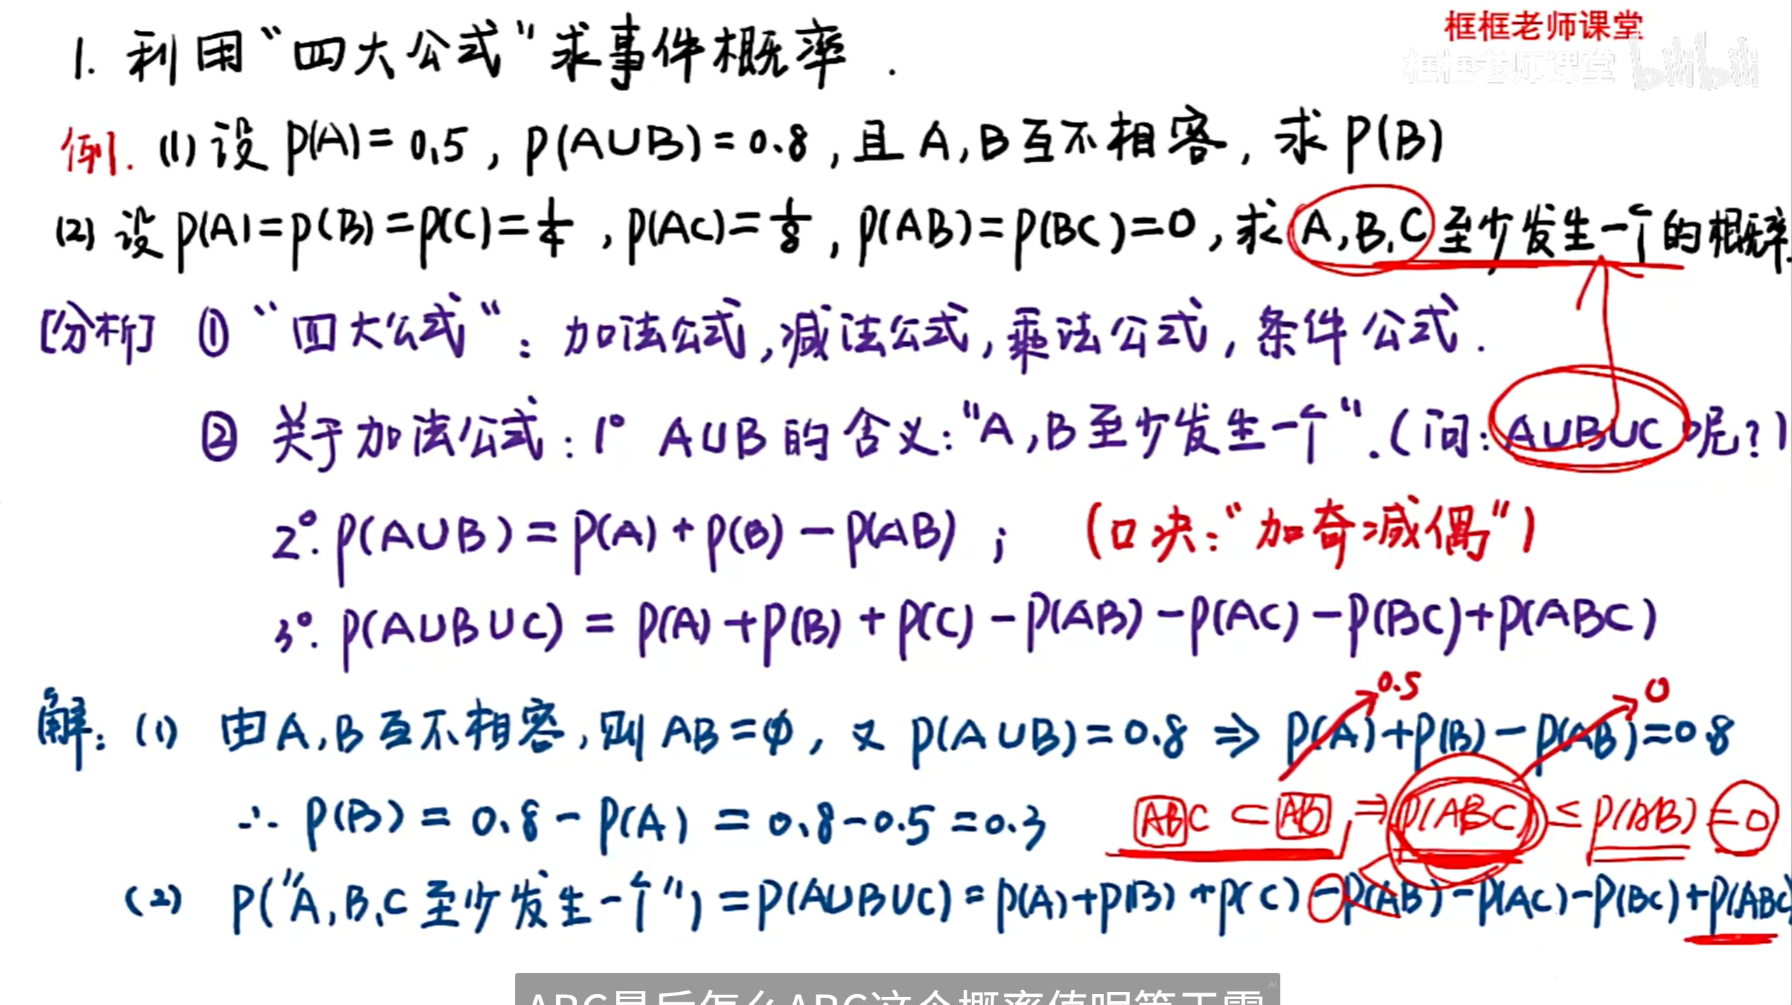 框框老师课堂
框框老师课堂 bilibili
1. 利用“四大公式”求事件概率.
例. (1) 设 P(A)=0.5, P(A∪B)=0.8, 且 A,B互不相容, 求 P(B)
(2) 设 P(A)=P(B)=P(C)=1/4, P(AC)=1/8, P(AB)=P(BC)=0, 求 A,B,C 至少发生一个的概率.
[分析] ① “四大公式”: 加法公式, 减法公式, 乘法公式, 条件公式.
② 关于加法公式: 1° A∪B 的含义: “A,B至少发生一个”. (问: A∪B∪C 呢?)
2°. P(A∪B)=P(A)+P(B)-P(AB); (口决: “加奇减偶”)
3°. P(A∪B∪C)=P(A)+P(B)+P(C)-P(AB)-P(AC)-P(BC)+P(ABC)
0.5 0
解: (1) 由A,B互不相容, 则 AB=φ, 又 P(A∪B)=0.8 ⇒ P(A)+P(B)-P(AB)=0.8
∴ P(B)=0.8-P(A)=0.8-0.5=0.3
ABC ⊂ AB, ⇒ P(ABC) ≤ P(AB)=0
(2) P(“A,B,C至少发生一个”)=P(A∪B∪C)=P(A)+P(B)+P(C)-P(AB)-P(AC)-P(BC)+P(ABC